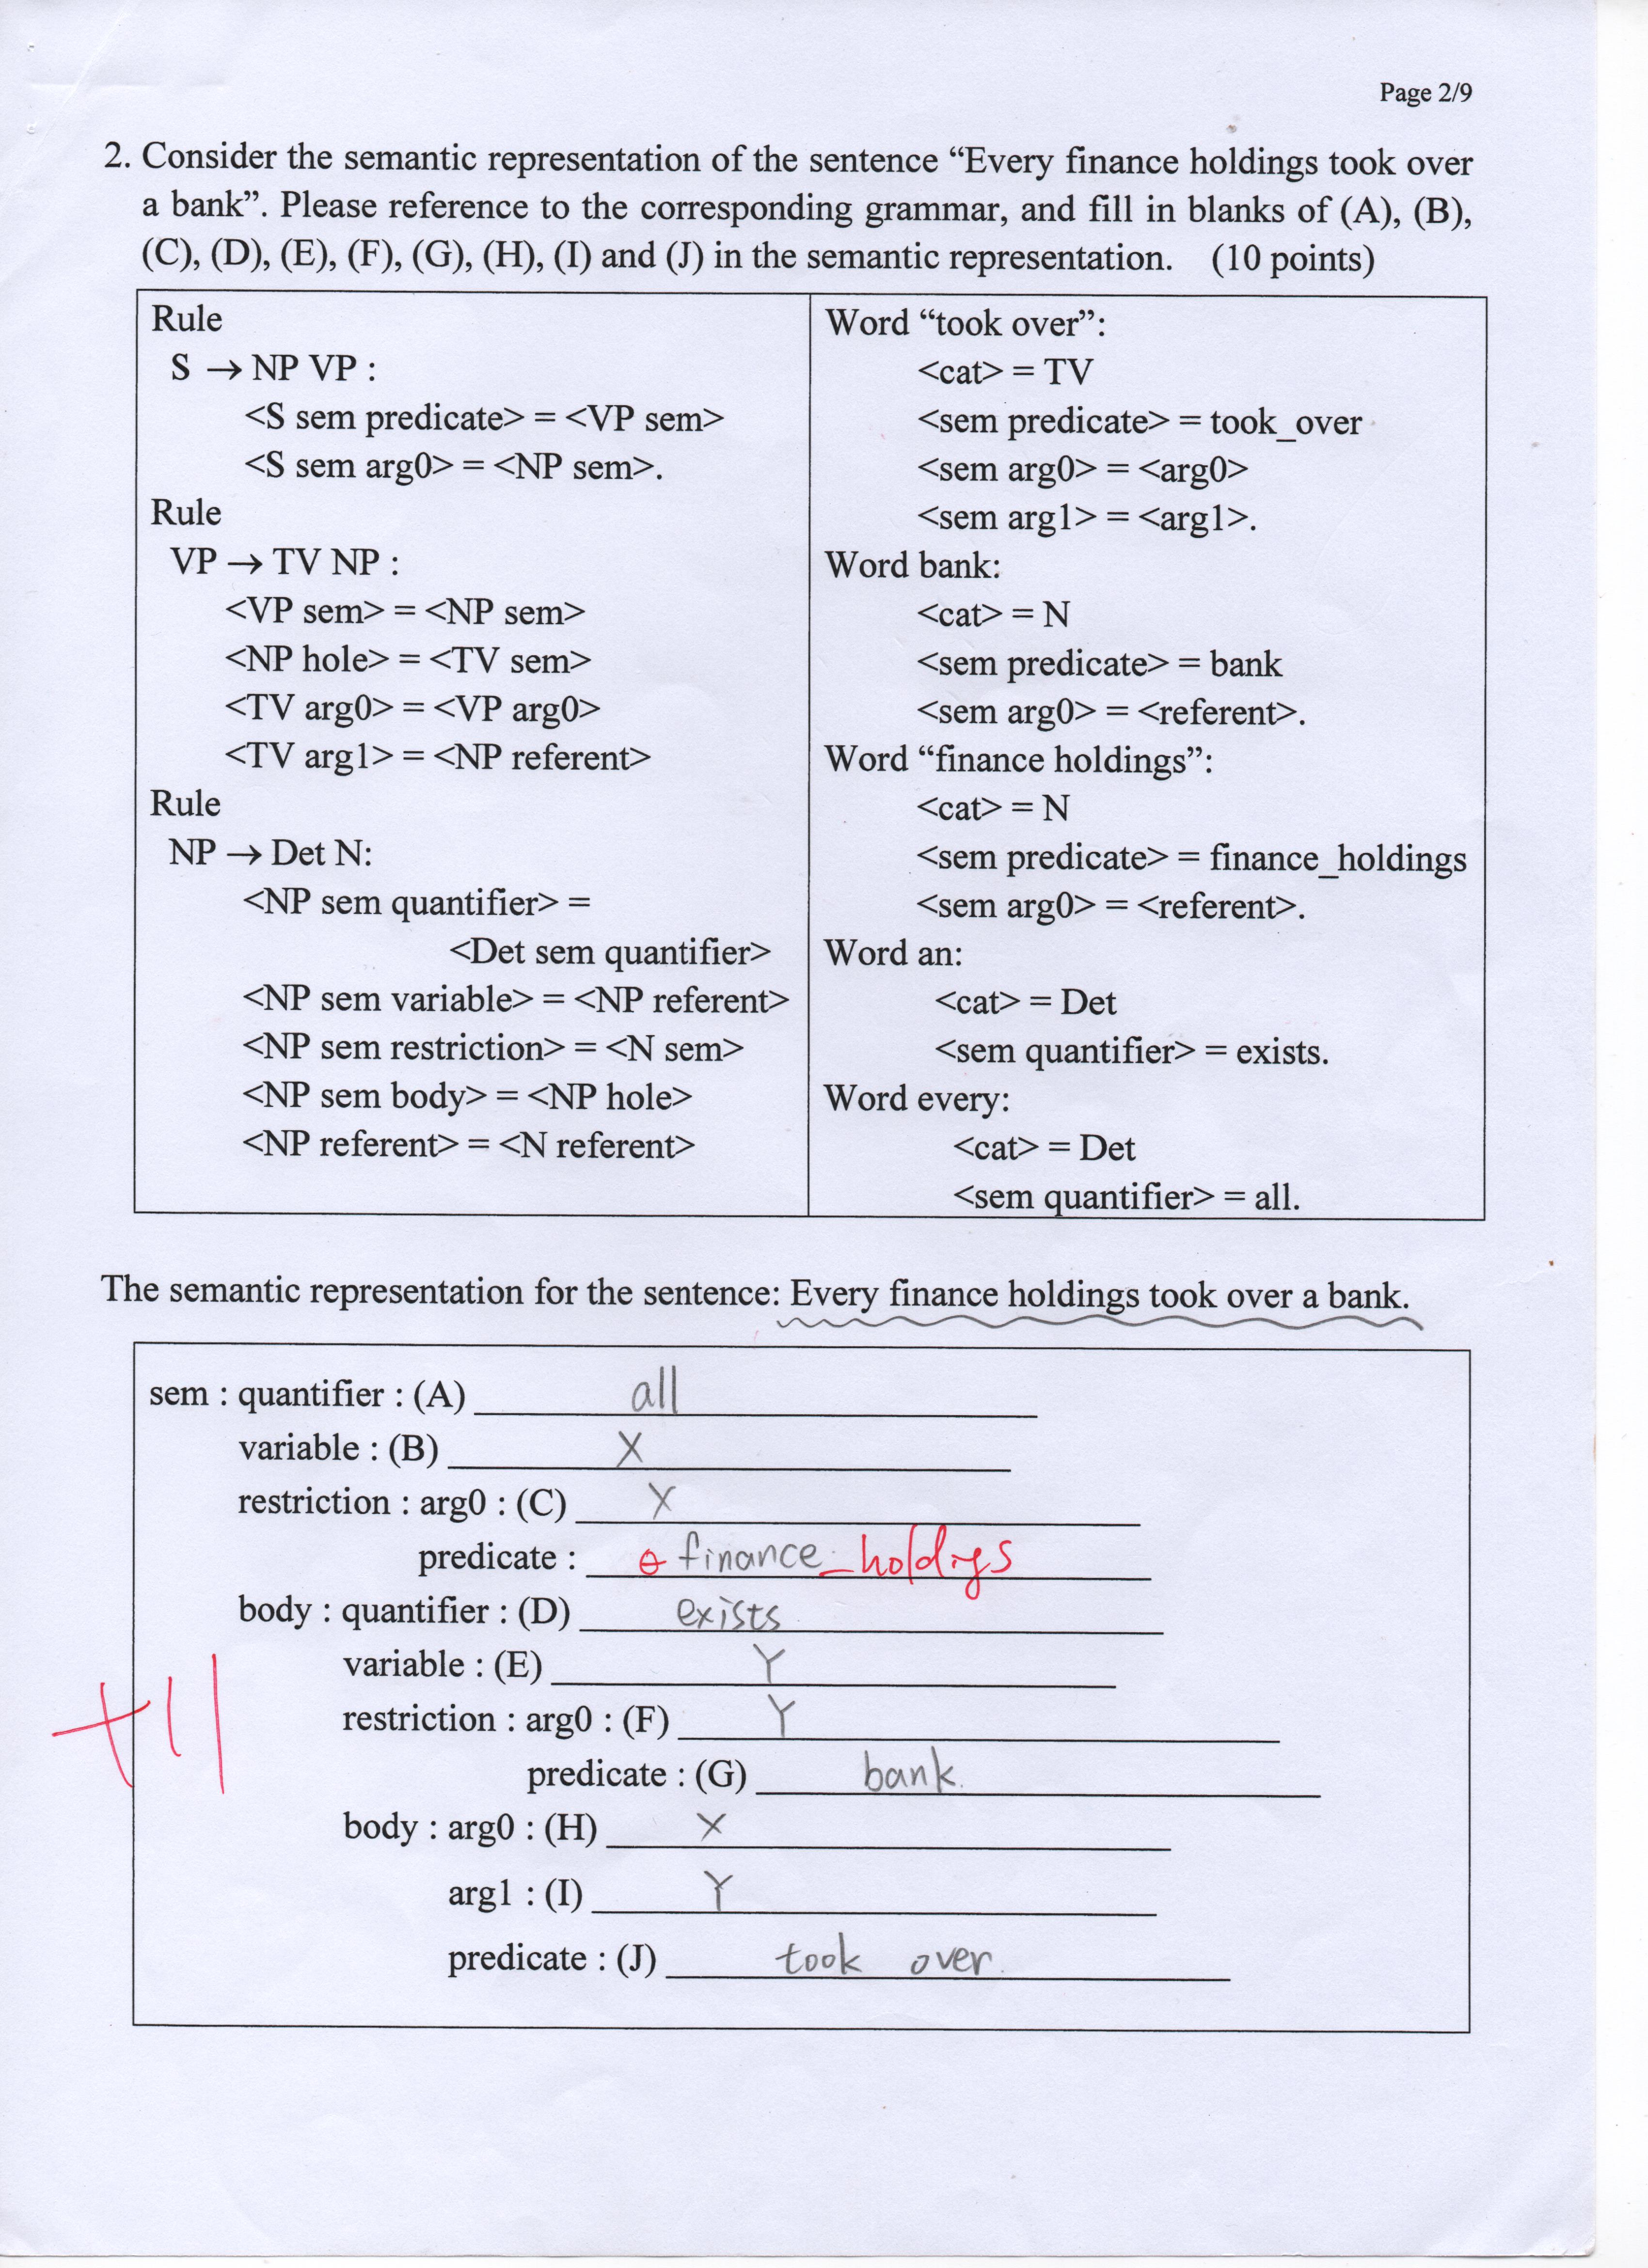 Page 2/9
2. Consider the semantic representation of the sentence “Every finance holdings took over
a bank”. Please reference to the corresponding grammar, and fill in blanks of (A), (B),
(C), (D), (E), (F), (G), (H), (I) and (J) in the semantic representation. (10 points)
Rule
S → NP VP :
<S sem predicate> = <VP sem>
<S sem arg0> = <NP sem>.
Rule
VP → TV NP :
<VP sem> = <NP sem>
<NP hole> = <TV sem>
<TV arg0> = <VP arg0>
<TV arg1> = <NP referent>
Rule
NP → Det N:
<NP sem quantifier> =
<Det sem quantifier>
<NP sem variable> = <NP referent>
<NP sem restriction> = <N sem>
<NP sem body> = <NP hole>
<NP referent> = <N referent>
Word “took over”:
<cat> = TV
<sem predicate> = took_over
<sem arg0> = <arg0>
<sem arg1> = <arg1>.
Word bank:
<cat> = N
<sem predicate> = bank
<sem arg0> = <referent>.
Word “finance holdings”:
<cat> = N
<sem predicate> = finance_holdings
<sem arg0> = <referent>.
Word an:
<cat> = Det
<sem quantifier> = exists.
Word every:
<cat> = Det
<sem quantifier> = all.
The semantic representation for the sentence: Every finance holdings took over a bank.
sem : quantifier : (A) all
variable : (B) X
restriction : arg0 : (C) X
predicate : finance_holdings
body : quantifier : (D) exists
variable : (E) Y
restriction : arg0 : (F) Y
predicate : (G) bank.
body : arg0 : (H) X
arg1 : (I) Y
predicate : (J) took over.
+11